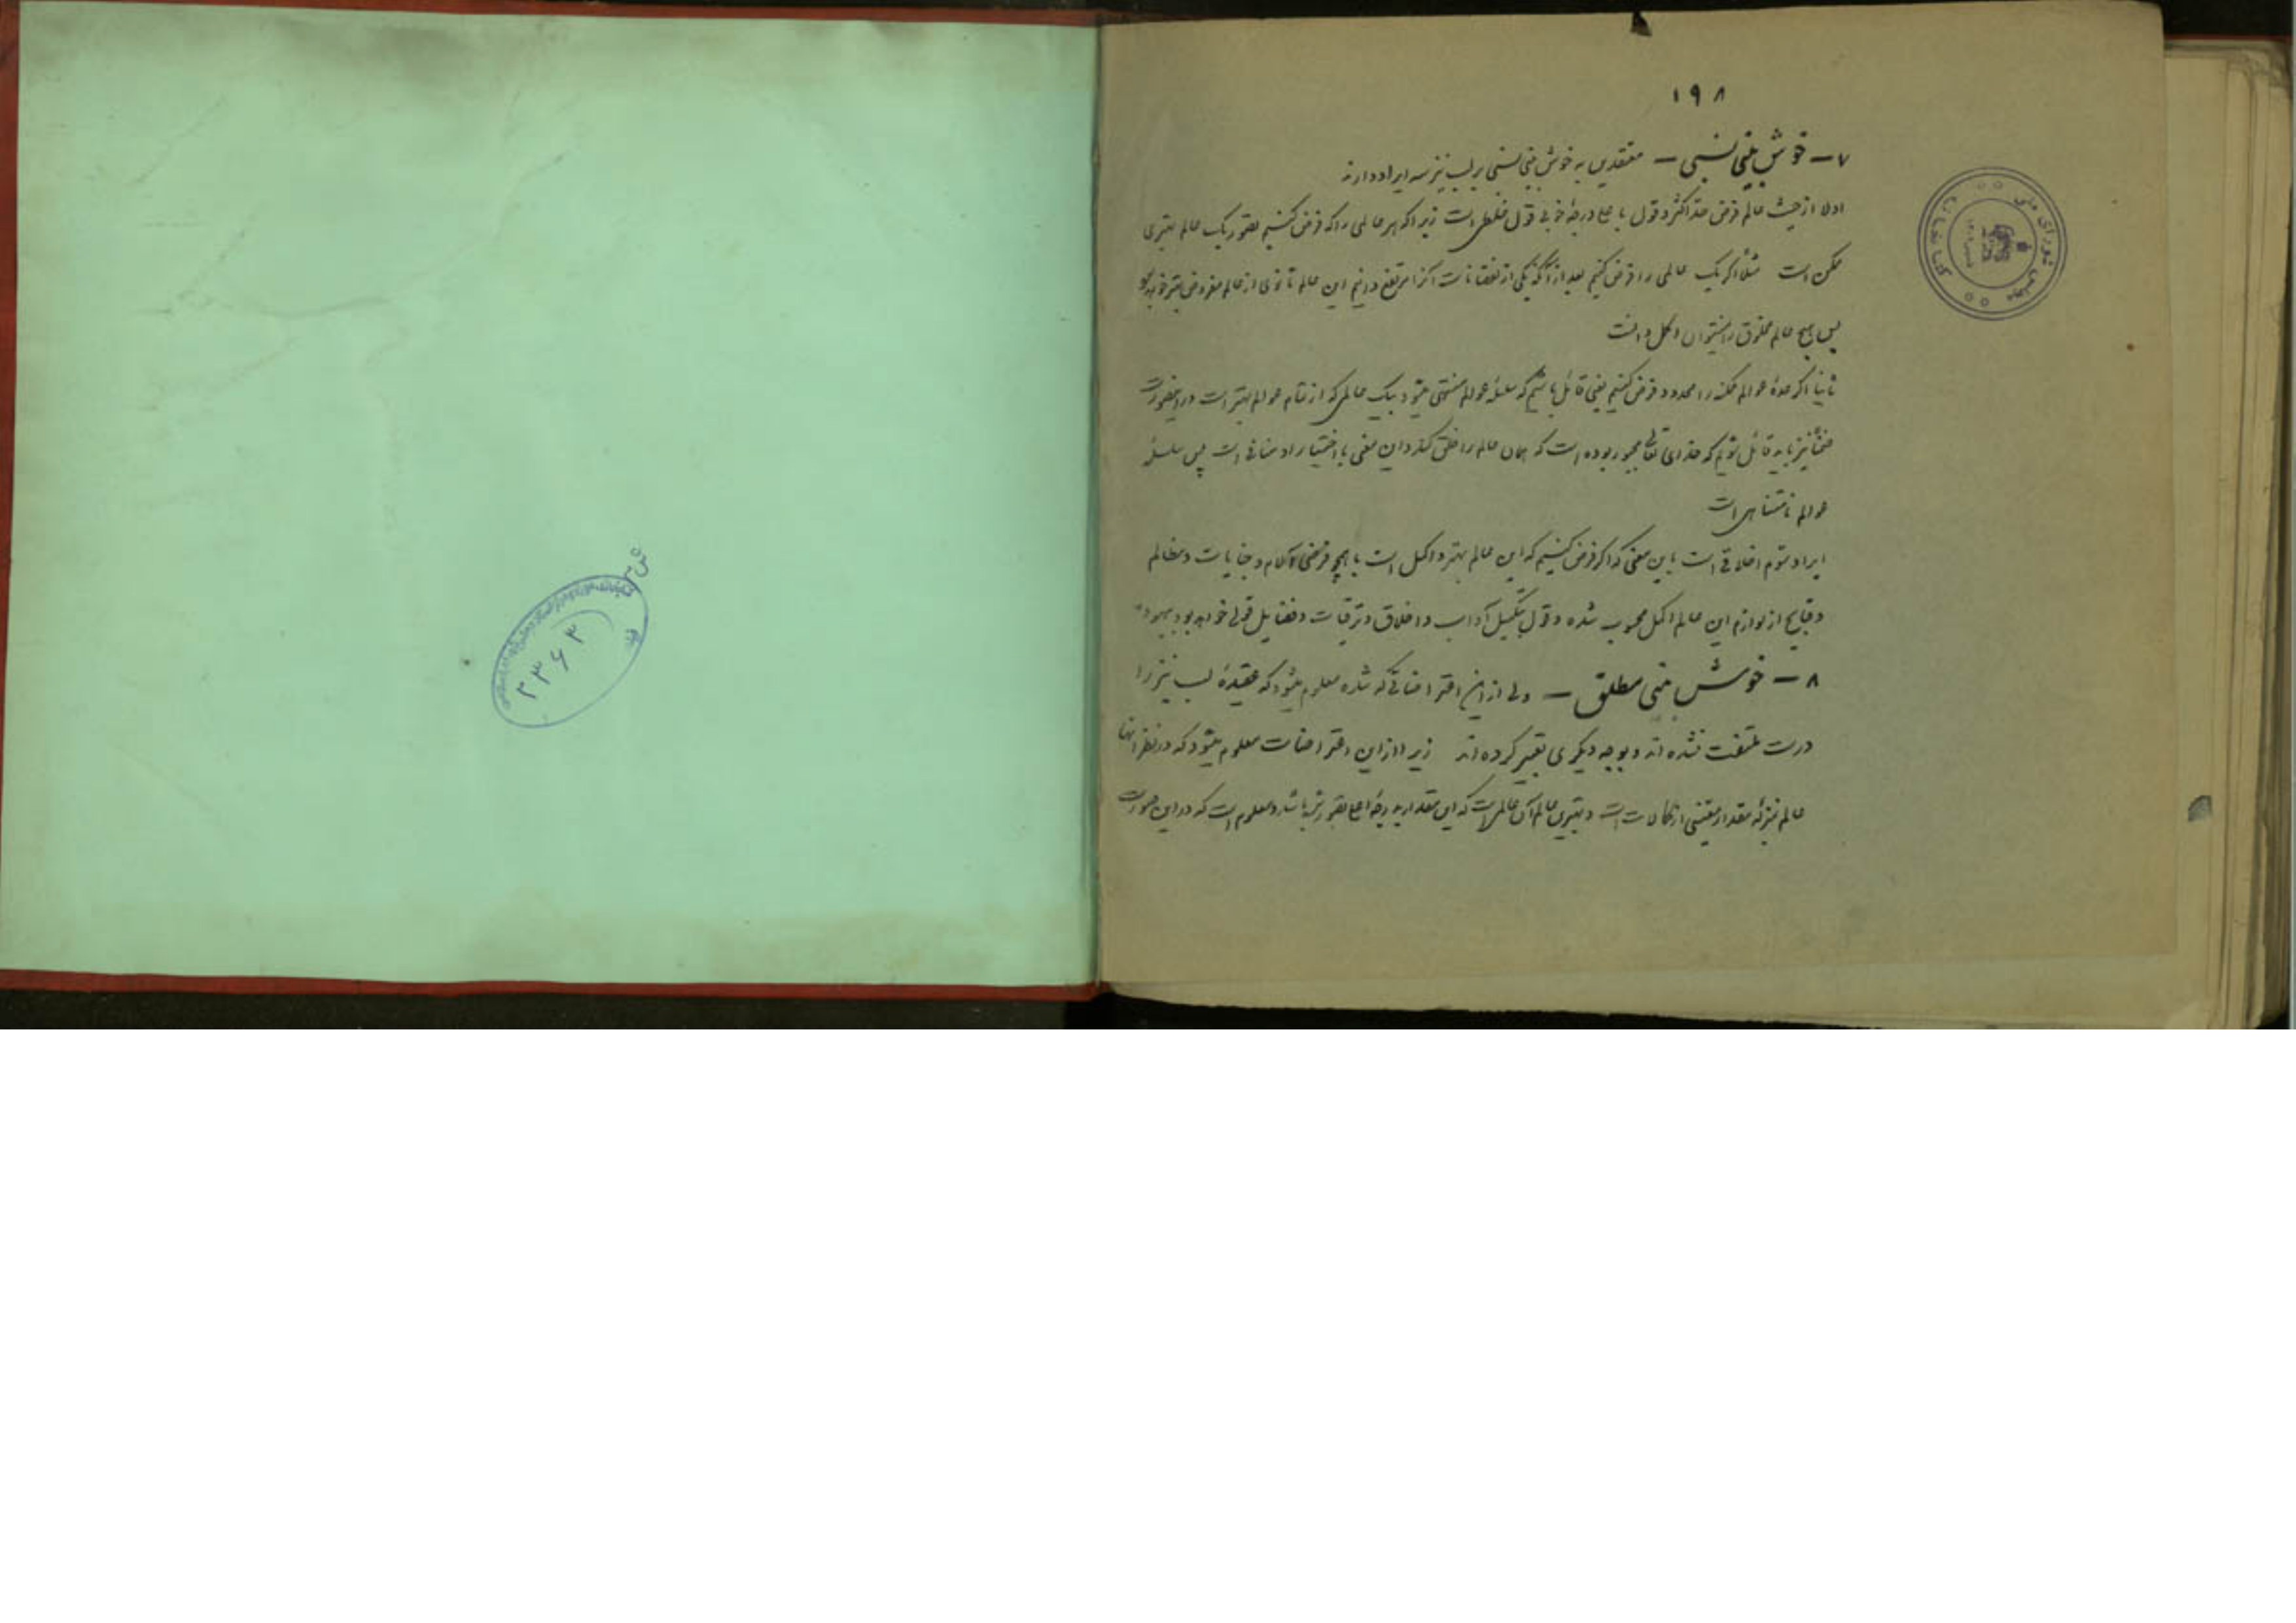 ۱۹۸
۷ — خوش بینی نسبی — معتقدین به خوش بینی نسبی بر لیب نیز سه ایراد دارند
اولا از حیث عالم فرض حد اکثر و قول با علا درجهٔ خوبی قول غلطی است زیرا که هر عالمی را که فرض کنیم تصور یک عالم بهتری
ممکن است مثلاً اگر یک عالمی را فرض کنیم بعد از آنکه یکی از نقصانات آنرا مرتفع داریم این عالم ثانوی از عالم مفروض بهتر خواهد بود
پس هیچ عالم مخلوق را نمیتوان اکمل دانست
ثانیا اگر عدهٔ عوالم ممکنه را محدود فرض کنیم یعنی قائل باشیم که سلسله عوالم منتهی میشود بیک عالمی که از تمام عوالم بهتر است در اینصورت
ضمناً نیز باید قائل شویم که خدای تعالی مجبور بوده است که همان عالم را خلق کند و این معنی با اختیار او منافی است پس سلسلهٔ
عوالم نامتناهی است
ایراد سوم اخلاقی است باین معنی که اگر فرض کنیم که این عالم بهتر و اکمل است با هیچ فرضی آلام و جنایات و مظالم
و قبایح از لوازم این عالم اکمل محسوب شده و قول بتکمیل آداب و اخلاق و ترقیات و فضایل قولی خواهد بود بیهوده
۸ — خوش بینی مطلق — ولی از این اعتراضاتی که شده معلوم میشود که عقیدهٔ لیب نیز را
درست ملتفت نشده اند و بوجه دیگری تعبیر کرده اند زیرا از این اعتراضات معلوم میشود که در نظر آنها
عالم بمنزله مقدار معینی از کمالات است و بهترین عالم آن عالمی است که این مقدار بدرجهٔ اعلا تصور شده باشد و معلوم است که در این صورت
شورای ملی
مجلس
کتابخانه
۲۳۶۲۳